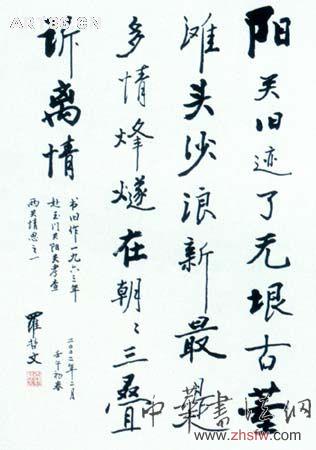 阳关旧迹了无垠古董
滩头沙浪新最
多情烽燧在朝〻三叠
诉离情
书旧作一九六三年
赴玉门关阳关考查
两关情思之一
二〇〇二年二月
壬午初春
羅哲文
www.zhsfw.com